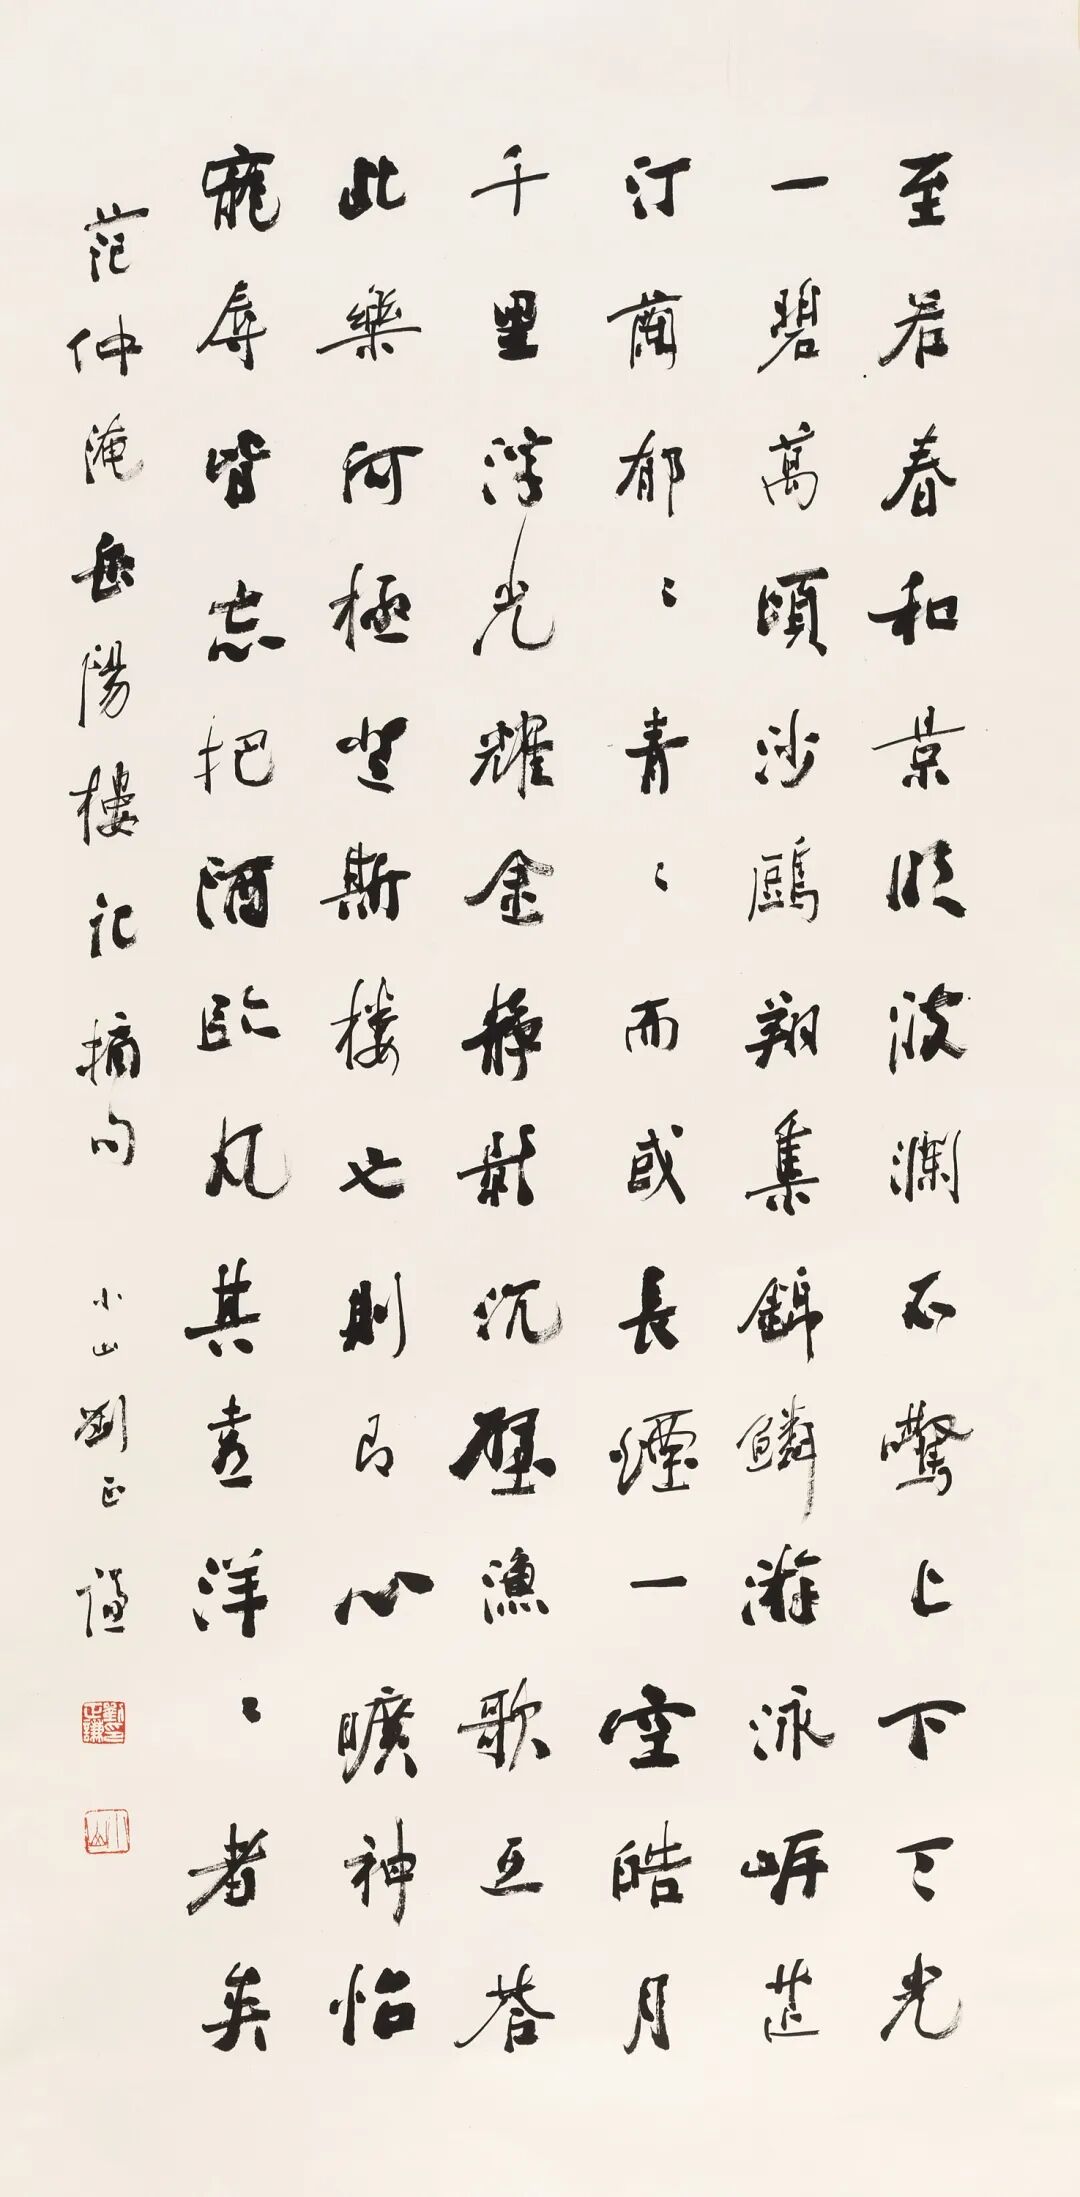 至若春和景明波瀾不驚上下天光
一碧萬頃沙鷗翔集錦鱗游泳岸芷
汀蘭郁〻青〻而或長煙一空皓月
千里浮光耀金靜影沉璧漁歌互荅
此樂何極登斯楼也則有心曠神怡
寵辱皆忘把酒臨風其喜洋〻者矣
范仲淹岳陽樓記摘句 小山劉正謙
劉正謙
小山